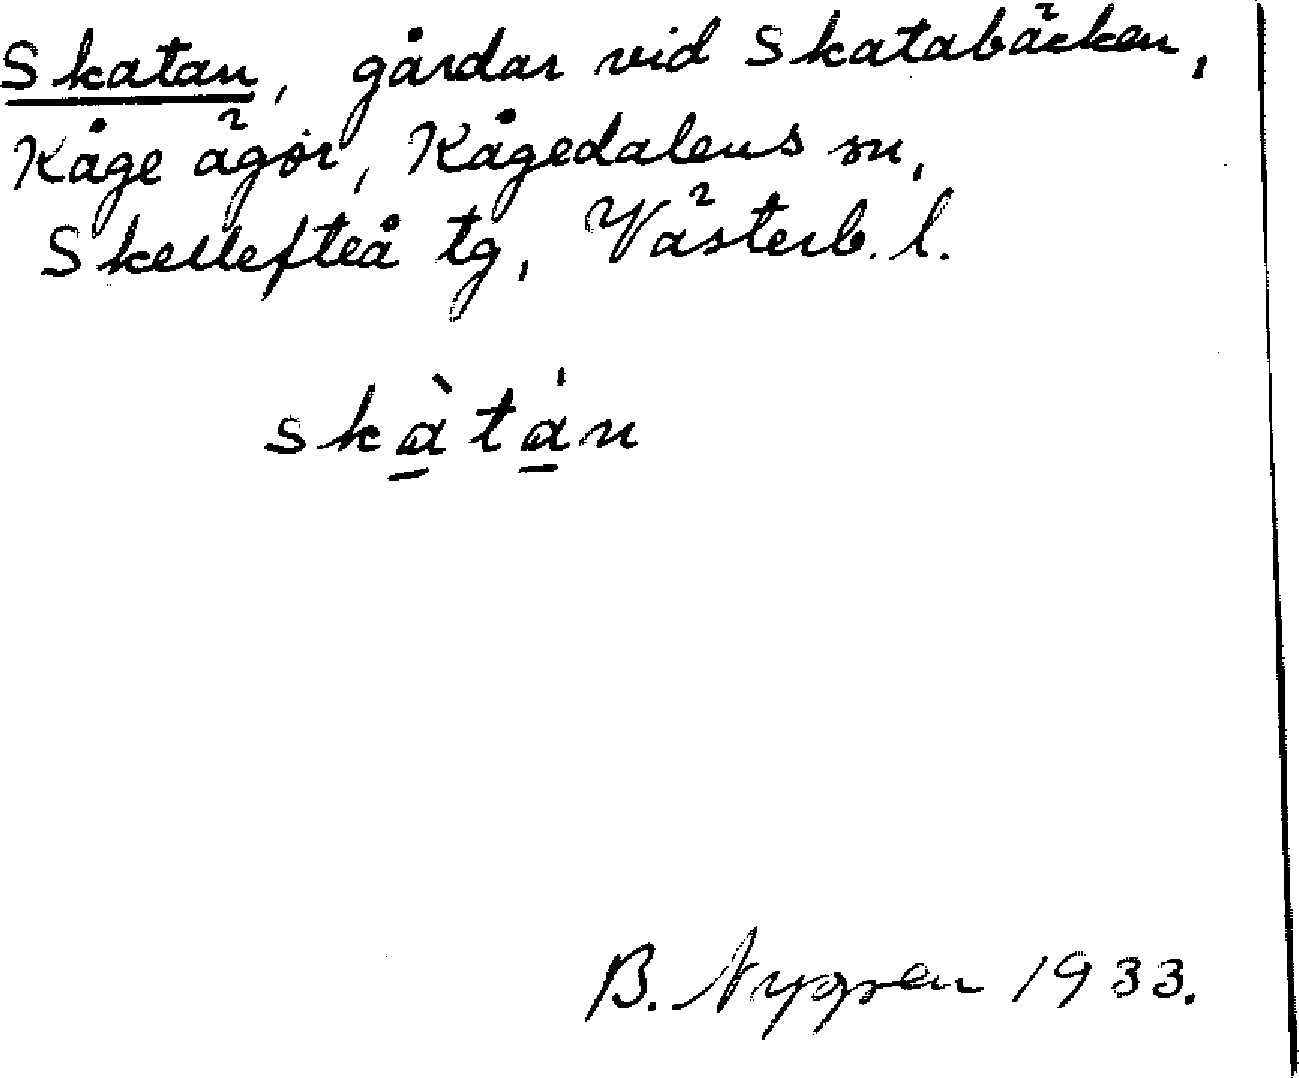 Skatan, gårdar vid Skatabäcken,
Kåge ägor, Kågedalens sn,
Skellefteå tg, Västerb. l.
skà̠tá̠n
B. Nygren 1933.